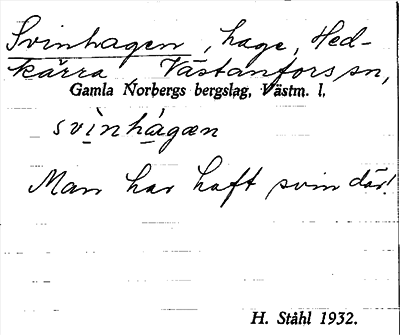 Svinhagen, hage, Hed-
kärra, Västanfors sn,
Gamla Norbergs bergslag, Västm. l.
svìnhágæn
Man har haft svin där!
H. Ståhl 1932.